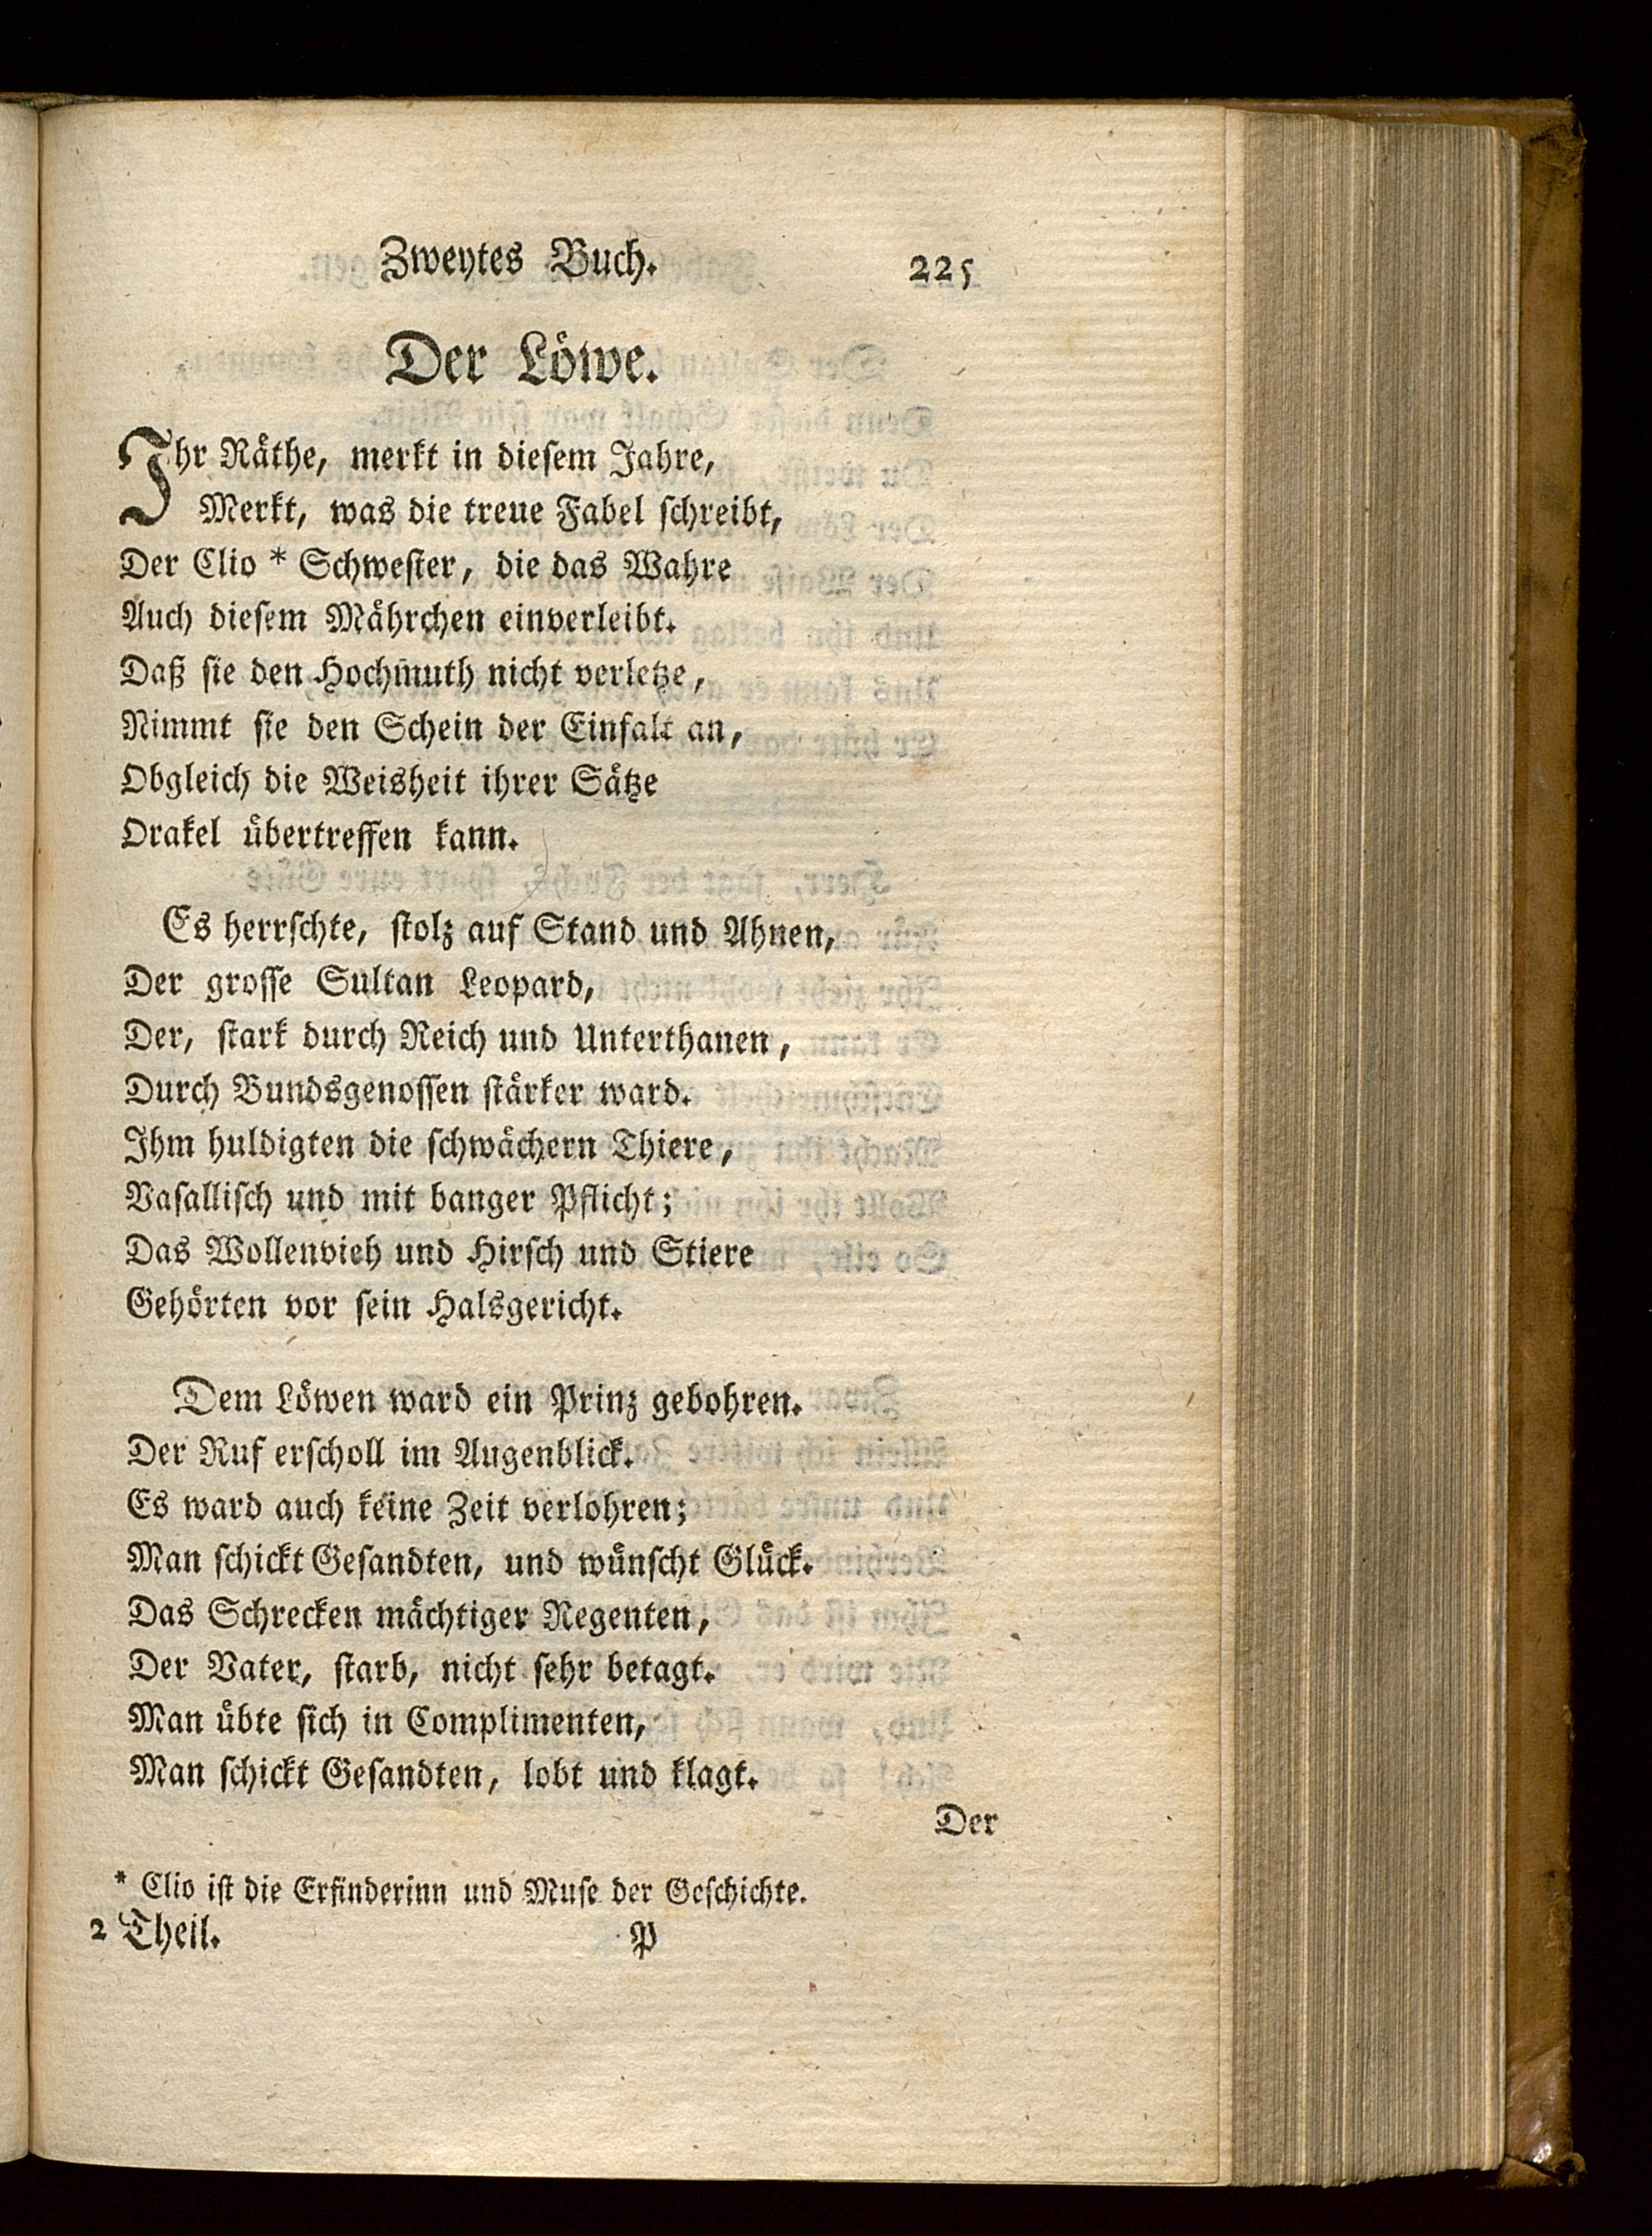 Zweytes Buch. 225
Der Löwe.
Ihr Räthe, merkt in dieſem Jahre,
Merkt, was die treue Fabel ſchreibt,
Der Clio * Schweſter, die das Wahre
Auch dieſem Mährchen einverleibt.
Daß ſie den Hochmuth nicht verletze,
Nimmt ſie den Schein der Einfalt an,
Obgleich die Weisheit ihrer Sätze
Orakel übertreffen kann.
Es herrſchte, ſtolz auf Stand und Ahnen,
Der groſſe Sultan Leopard,
Der, ſtark durch Reich und Unterthanen,
Durch Bundsgenoſſen ſtärker ward.
Ihm huldigten die ſchwächern Thiere,
Vaſalliſch und mit banger Pflicht;
Das Wollenvieh und Hirſch und Stiere
Gehörten vor ſein Halsgericht.
Dem Löwen ward ein Prinz gebohren.
Der Ruf erſcholl im Augenblick.
Es ward auch keine Zeit verlohren;
Man ſchickt Geſandten, und wünſcht Glück.
Das Schrecken mächtiger Regenten,
Der Vater, ſtarb, nicht ſehr betagt.
Man übte ſich in Complimenten,
Man ſchickt Geſandten, lobt und klagt.
Der
* Clio iſt die Erfinderinn und Muſe der Geſchichte.
2 Theil. P